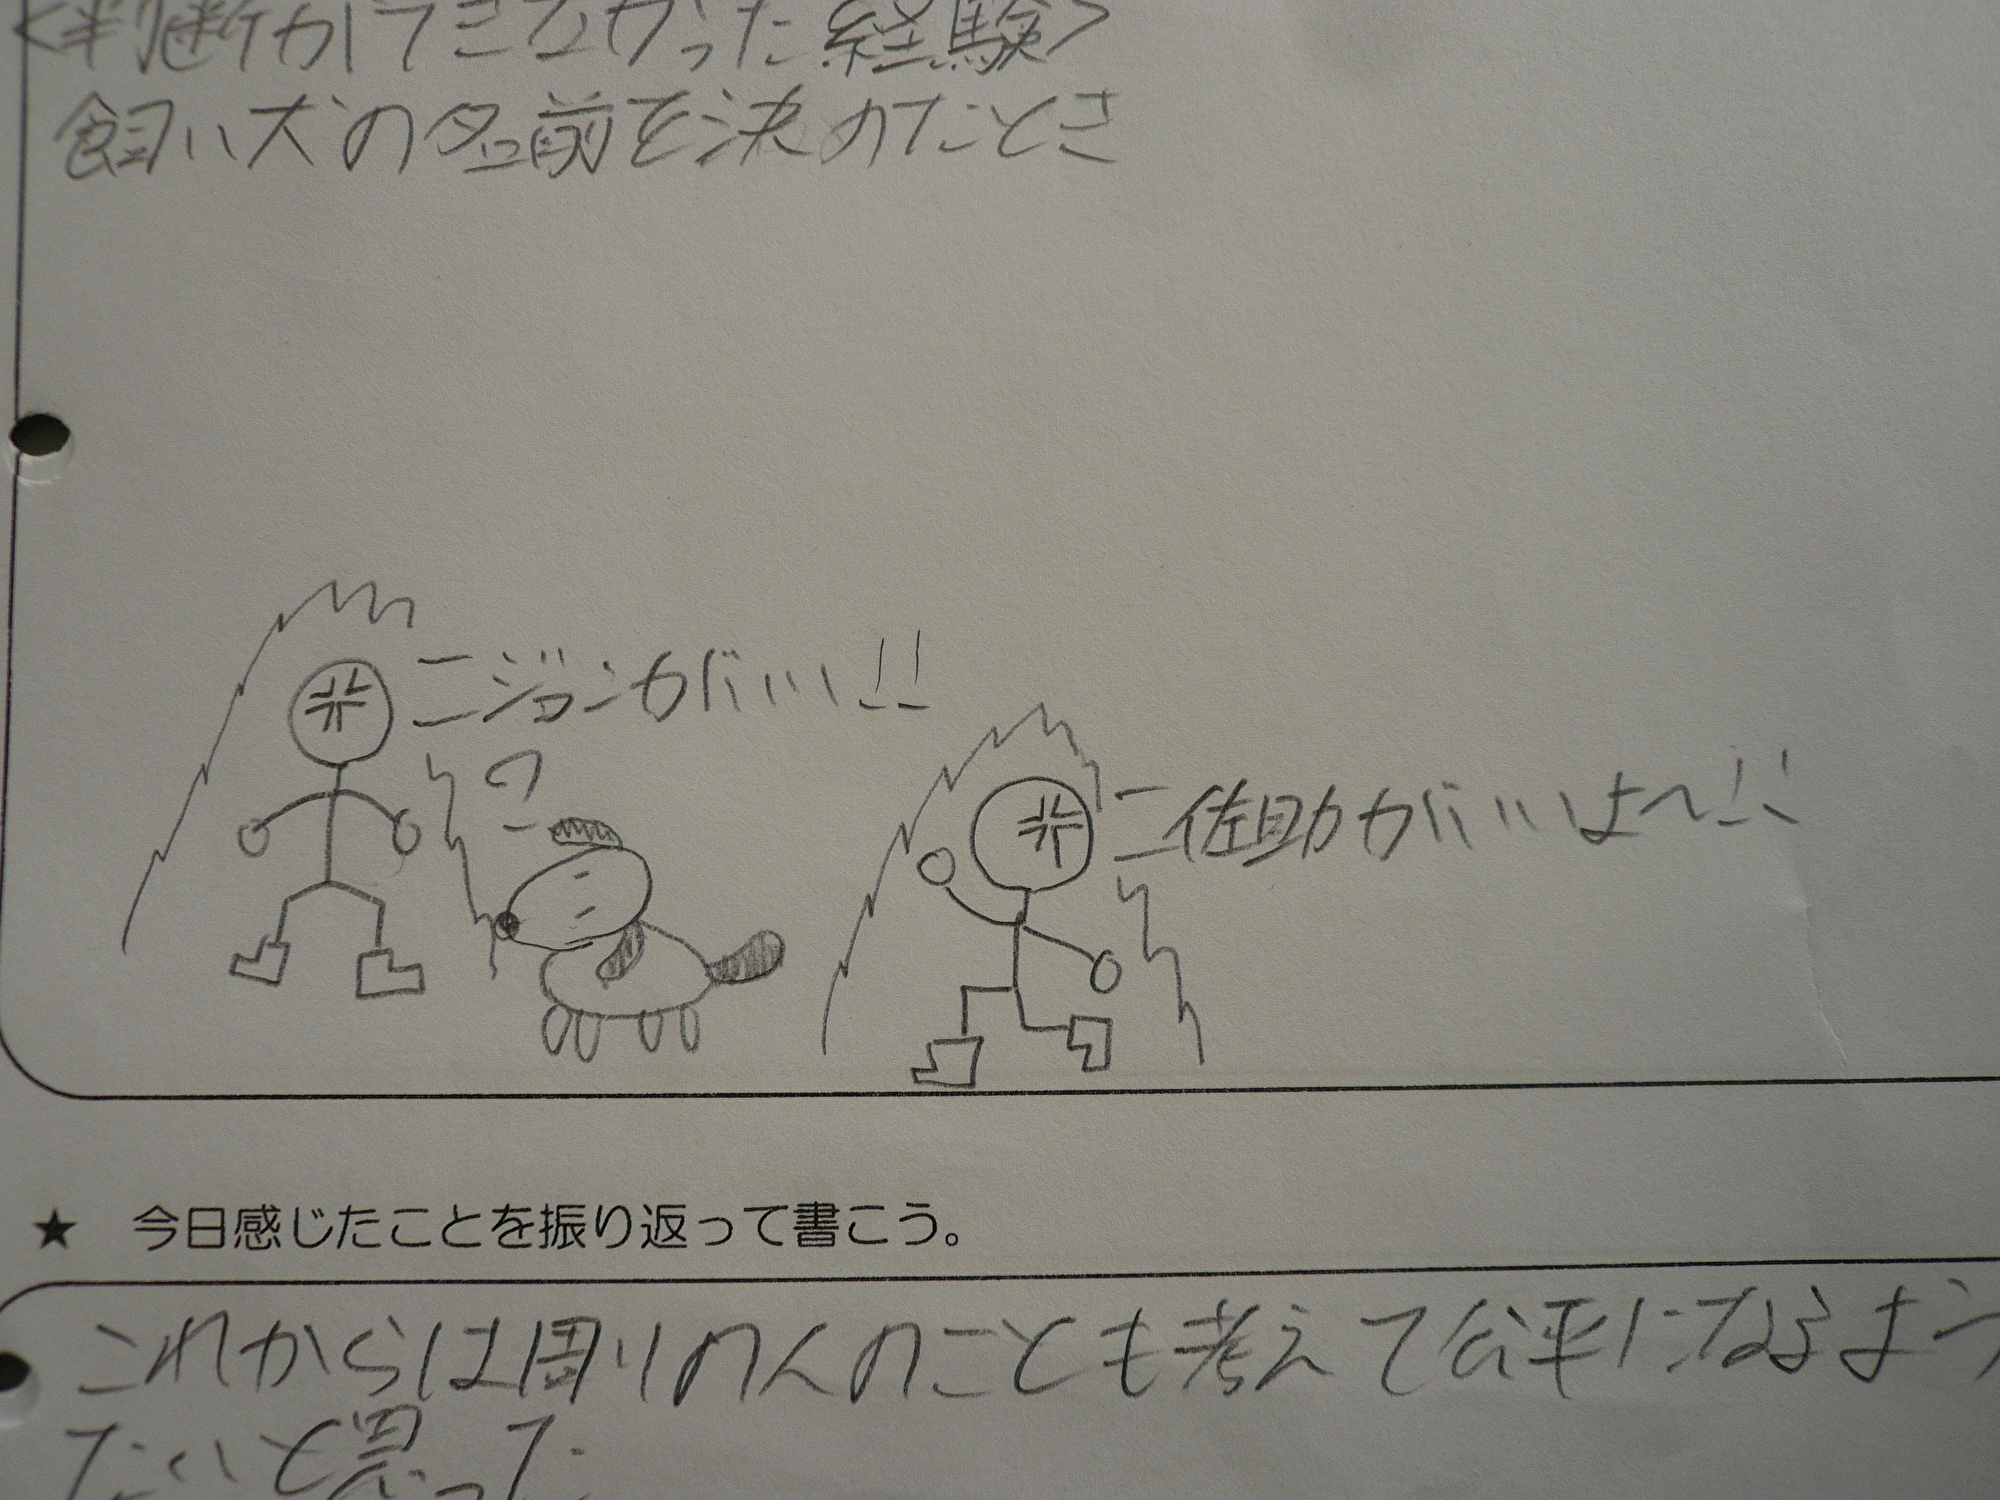 <判断ができなかった経験>
飼い犬の名前を決めたとき
ジョンがいい!!
?
佐助がいいよ〜!!
★ 今日感じたことを振り返って書こう。
これからは周りの人のことも考えて公平になるよう
たいと思った